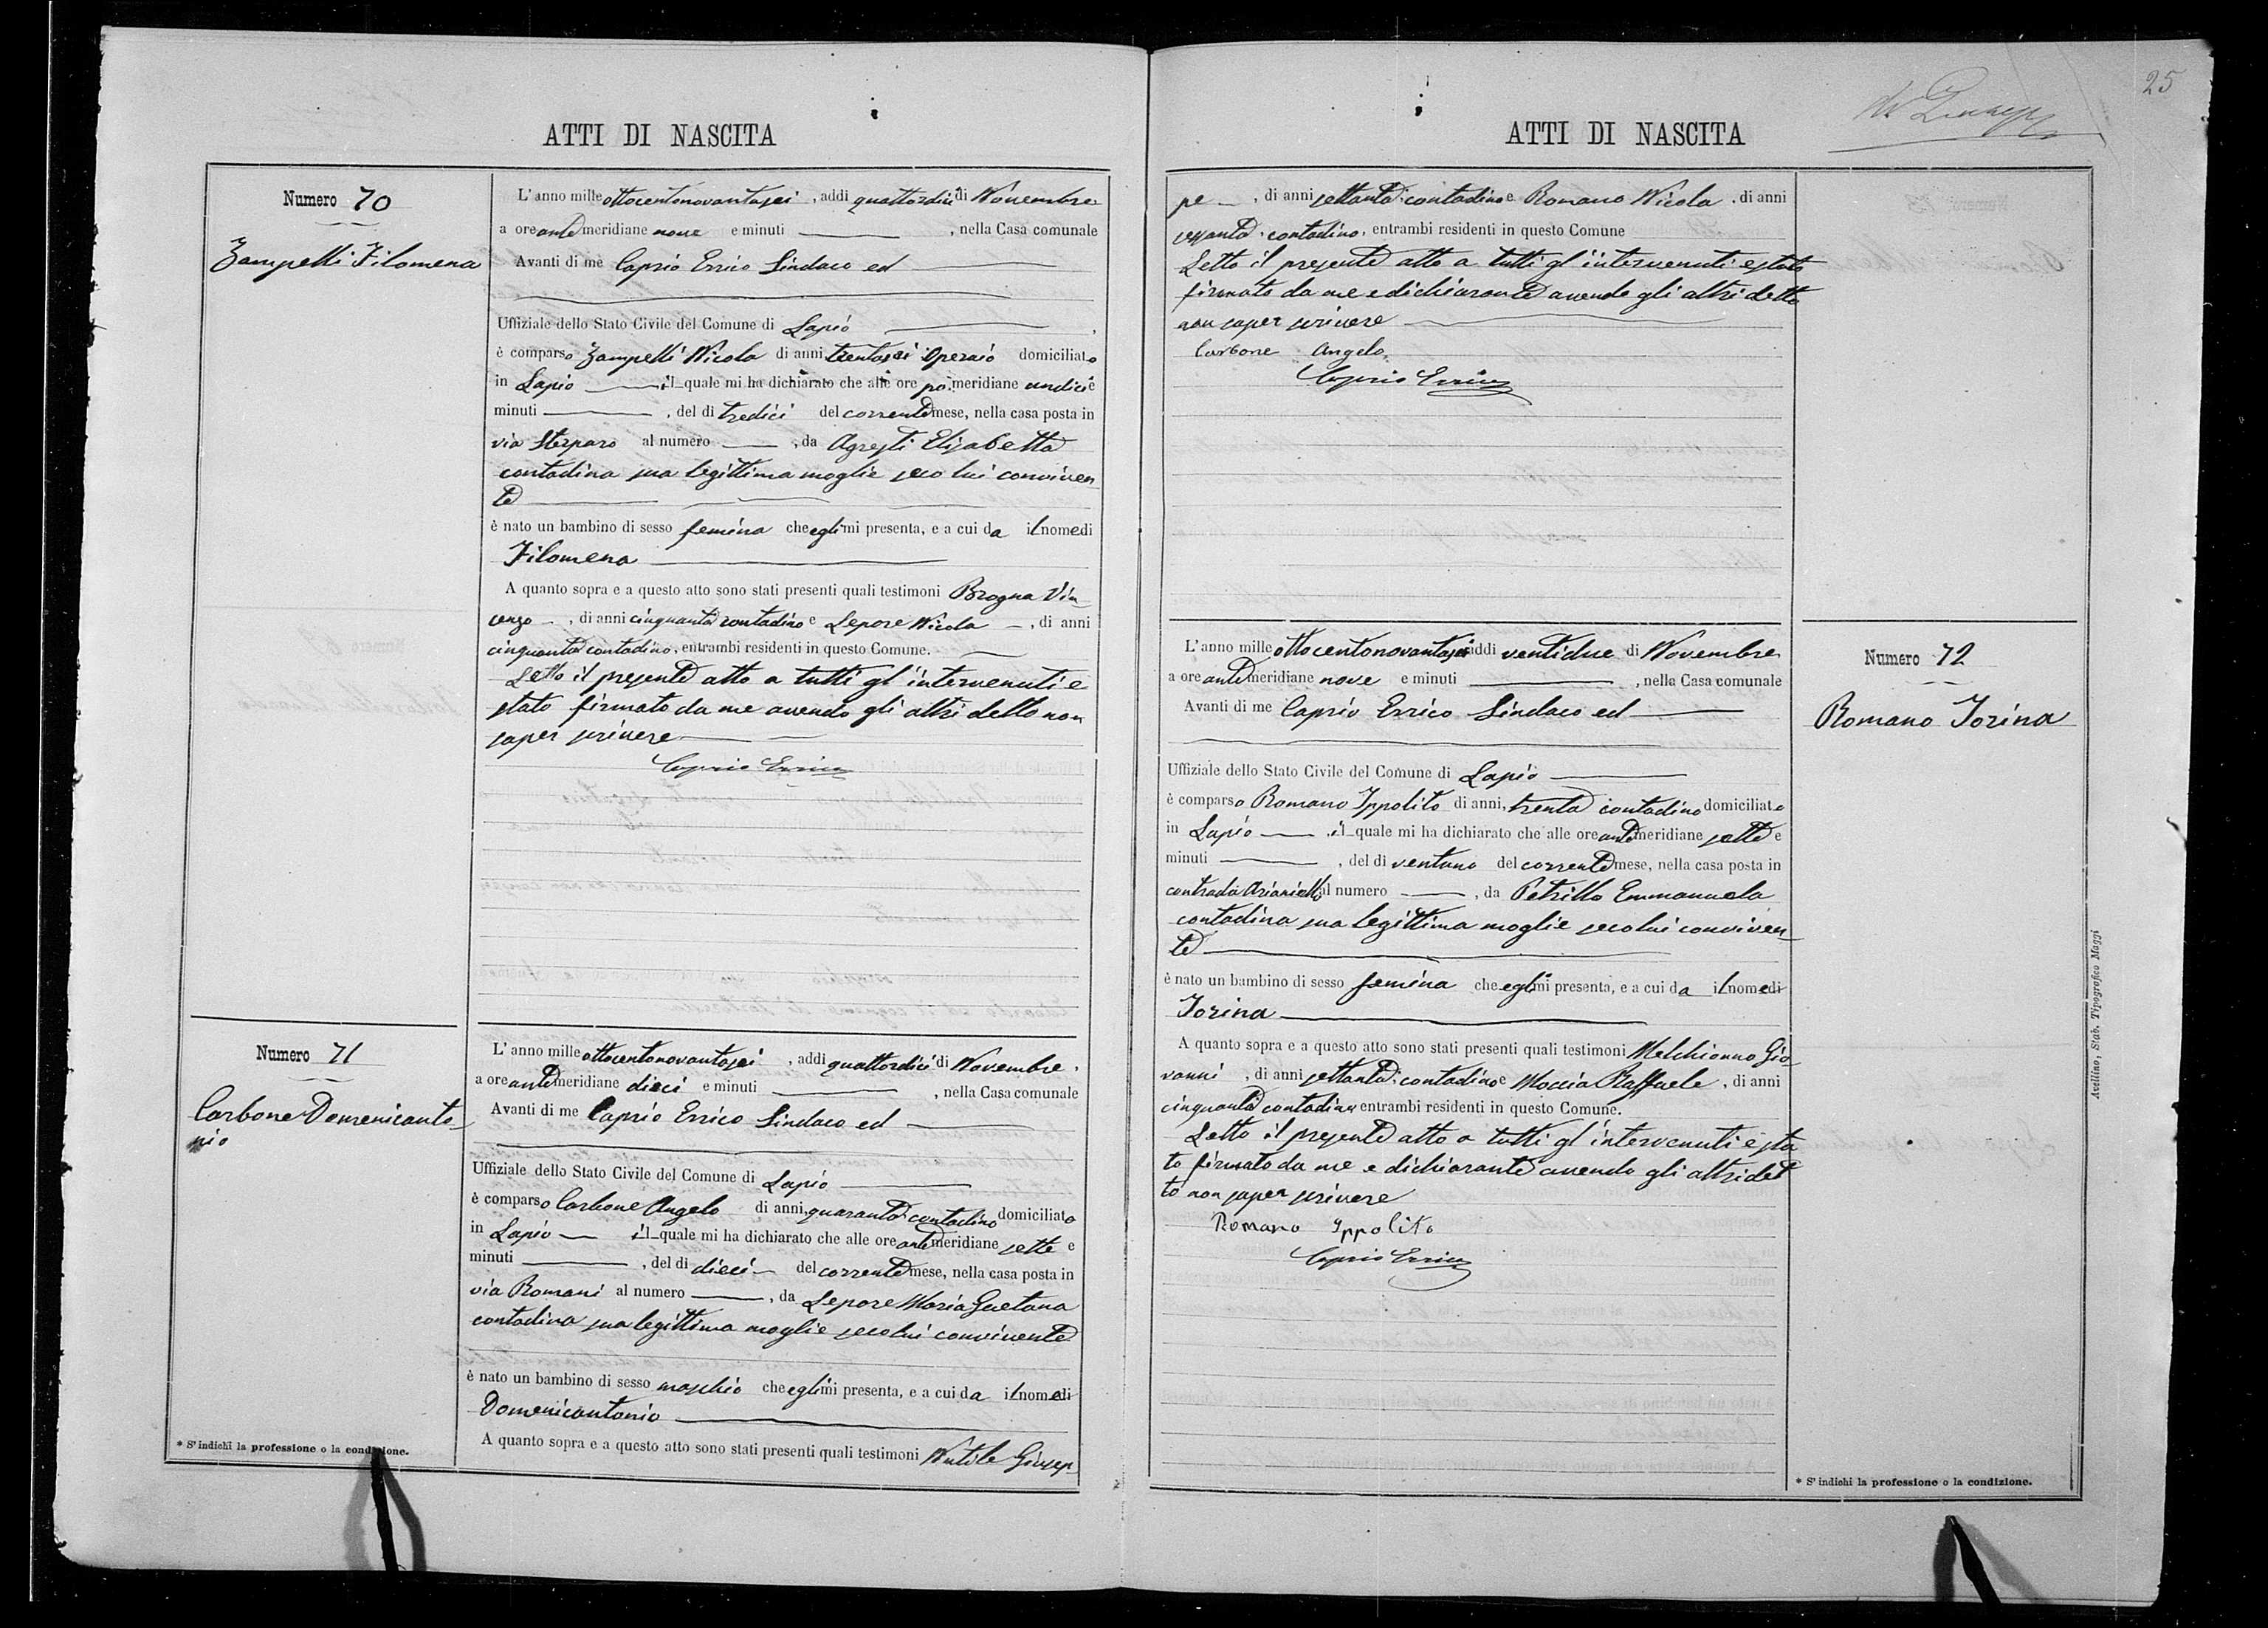 ATTI DI NASCITA
Numero 70
Zampelli Filomena
L'anno mille ottocentonovantasei, addì quattordici di Novembre
a ore ante meridiane nove e minuti, nella Casa comunale
Avanti di me Caprio Errico Sindaco ed
Uffiziale dello Stato Civile del Comune di Lapio
è comparso Zampelli Nicola di anni trentasei Operaio domiciliato
in Lapio il quale mi ha dichiarato che alle ore po meridiane undici e
minuti, del dì tredici del corrente mese, nella casa posta in
via Sterparo al numero, da Agresti Elisabetta
contadina sua legittima moglie seco lui conviven
te
è nato un bambino di sesso femina che egli mi presenta, e a cui da il nome di
Filomena
A quanto sopra e a questo atto sono stati presenti quali testimoni Brogna Vin
cenzo, di anni cinquanta contadino e Lepore Nicola, di anni
cinquanta contadino, entrambi residenti in questo Comune.
Letto il presente atto a tutti gl'intervenuti e
stato firmato da me avendo gli altri detto non
saper scrivere
Caprio Errico
Numero 71
Carbone Domenicanto
nio
L'anno mille ottocentonovantasei, addì quattordici di Novembre,
a ore ante meridiane dieci e minuti, nella Casa comunale
Avanti di me Caprio Errico Sindaco ed
Uffiziale dello Stato Civile del Comune di Lapio
è comparso Carbone Angelo di anni, quaranta contadino domiciliato
in Lapio il quale mi ha dichiarato che alle ore ante meridiane sette e
minuti, del dì dieci del corrente mese, nella casa posta in
via Romani al numero, da Lepore Maria Gaetana
contadina sua legittima moglie seco lui convivente
è nato un bambino di sesso maschio che egli mi presenta, e a cui da il nome di
Domenicantonio
A quanto sopra e a questo atto sono stati presenti quali testimoni Nutile Giusep
* S'indichi la professione o la condizione.
25
ATTI DI NASCITA
pe, di anni settanta contadino e Romano Nicola, di anni
sessanta, contadino, entrambi residenti in questo Comune
Letto il presente atto a tutti gl'intervenuti e stato
firmato da me e dichiarante avendo gli altri detto
non saper scrivere
Carbone Angelo
Caprio Errico
Numero 72
Romano Iorina
L'anno mille ottocentonovantasei addì ventidue di Novembre
a ore ante meridiane nove e minuti, nella Casa comunale
Avanti di me Caprio Errico Sindaco ed
Uffiziale dello Stato Civile del Comune di Lapio
è comparso Romano Ippolito di anni, trenta contadino domiciliato
in Lapio il quale mi ha dichiarato che alle ore ante meridiane sette e
minuti, del dì ventuno del corrente mese, nella casa posta in
contrada Arianiello al numero, da Petrillo Emmanuela
contadina sua legittima moglie seco lui conviven
te
è nato un bambino di sesso femina che egli mi presenta, e a cui da il nome di
Iorina
A quanto sopra e a questo atto sono stati presenti quali testimoni Melchionno Gio
vanni, di anni settanta contadino e Moccia Raffaele, di anni
cinquanta contadino entrambi residenti in questo Comune.
Letto il presente atto a tutti gl'intervenuti e sta
to firmato da me e dichiarante avendo gli altri det
to non saper scrivere
Romano Ippolito
Caprio Errico
* S'indichi la professione o la condizione.
Avellino, Stab. Tipografico Maggi